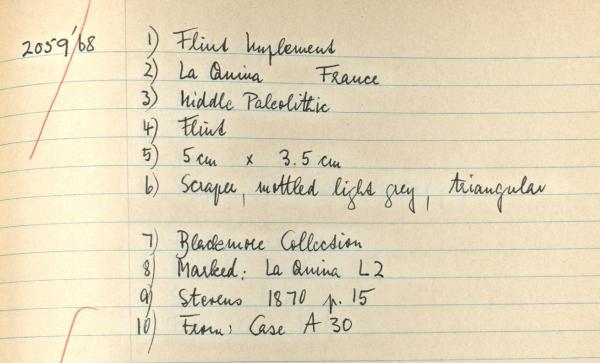 2059'68 1) Flint Implement
2) La Quina France
3) Middle Paleolithic
4) Flint
5) 5 cm x 3.5 cm
6) Scraper, mottled light grey, triangular
7) Blackmore Collection
8) Marked: La Quina L2
9) Stevens 1870 p. 15
10) From: Case A 30